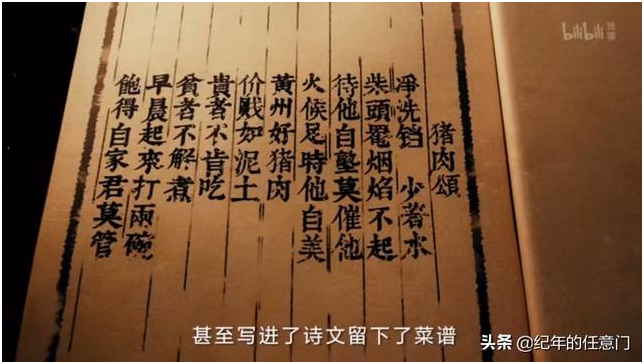 bilibili
猪肉頌
凈洗铛 少著水
柴頭罨烟焰不起
待他自塾莫催他
火候足時他自美
黄州好猪肉
价贱如泥土
貴者不肯吃
貧者不解煮
早晨起來打兩碗
飽得自家君莫管
甚至写进了诗文留下了菜谱
头条 @纪年的任意门